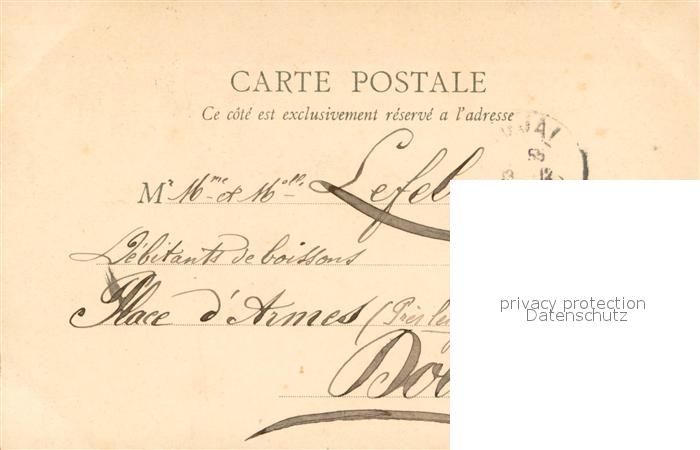 CARTE POSTALE
Ce côté est exclusivement réservé a l'adresse
OUAI
Mr Mme et Melle Lefeb
Débitants de boissons
Place d'Armes (Près le
Dou
privacy protection
Datenschutz